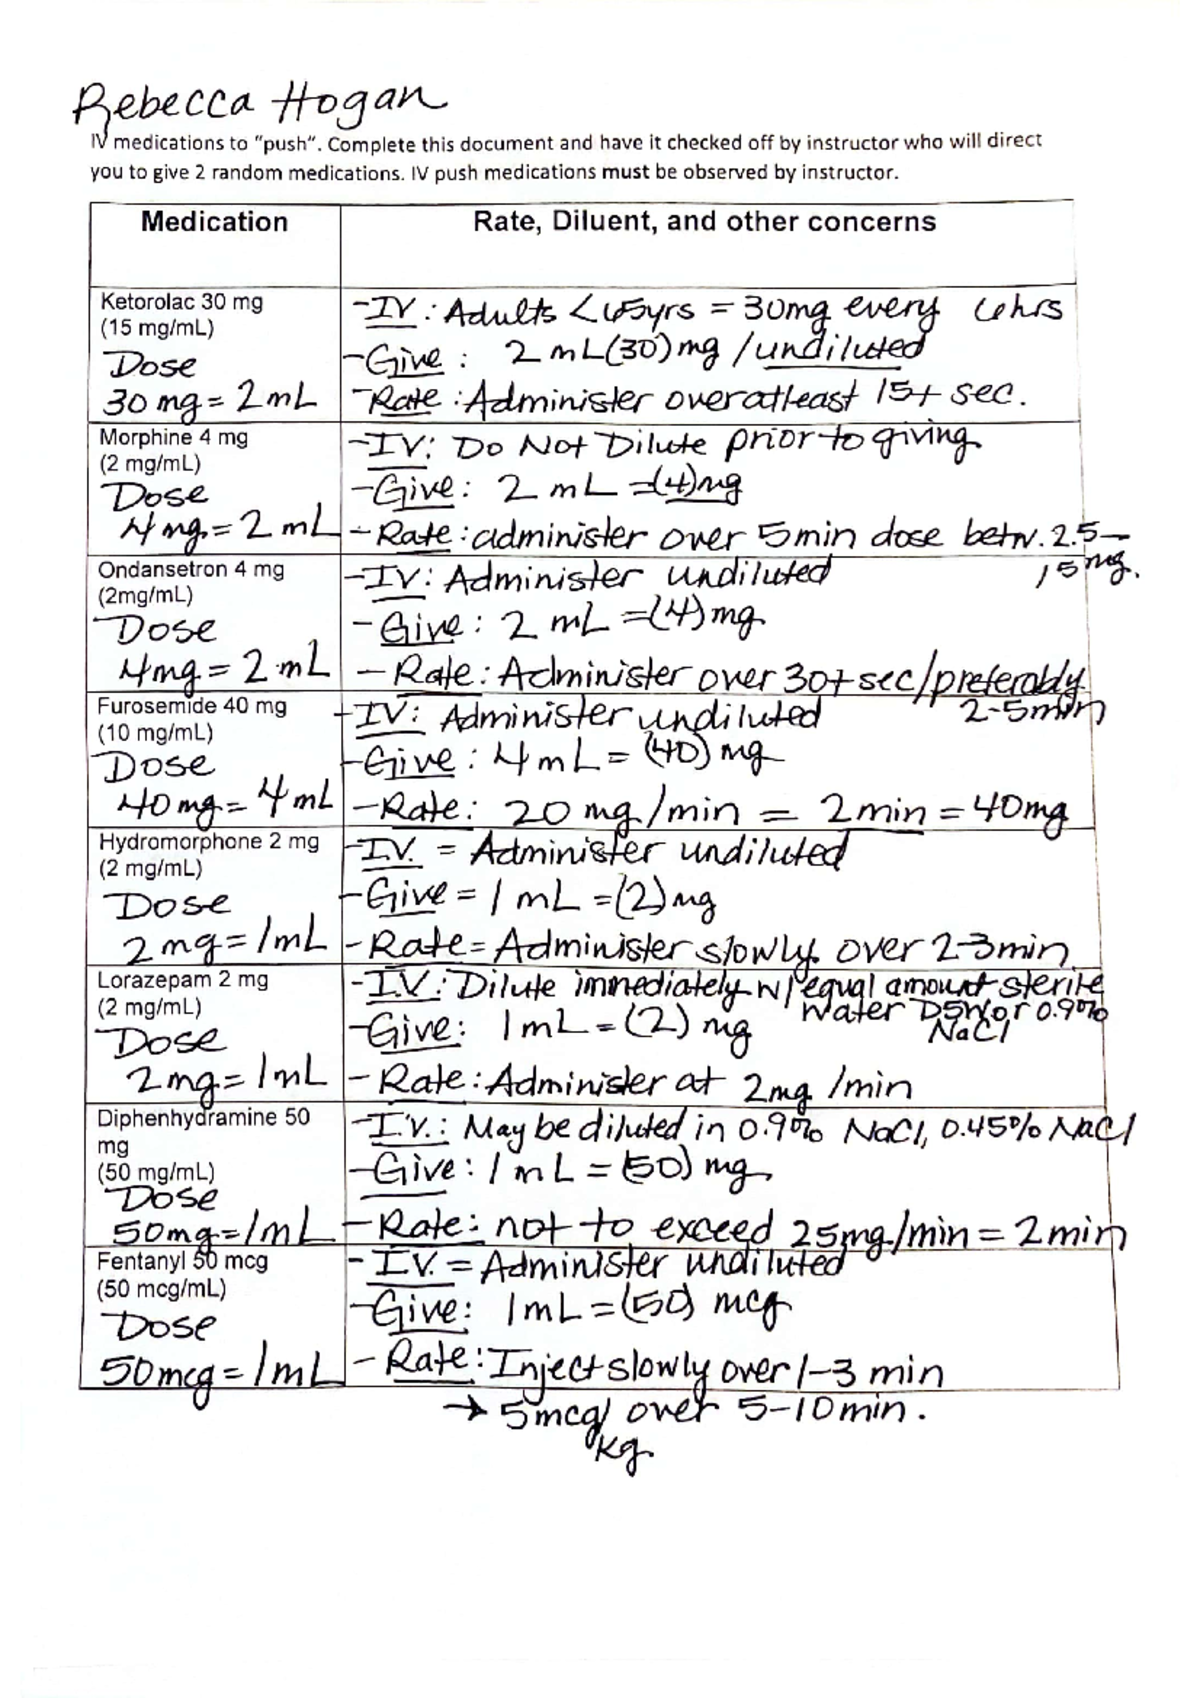 Rebecca Hogan
IV medications to "push". Complete this document and have it checked off by instructor who will direct
you to give 2 random medications. IV push medications must be observed by instructor.
Medication
Rate, Diluent, and other concerns
Ketorolac 30 mg
(15 mg/mL)
Dose
30 mg = 2 mL
- IV : Adults <65yrs = 30mg every 6hrs
- Give : 2 mL (30) mg / undiluted
- Rate : Administer over atleast 15+ sec.
Morphine 4 mg
(2 mg/mL)
Dose
4 mg. = 2 mL
- IV: Do Not Dilute prior to giving
- Give: 2 mL = (4) mg
- Rate: administer over 5min dose betw. 2.5-
15 mg.
Ondansetron 4 mg
(2mg/mL)
Dose
4mg = 2 mL
- IV: Administer undiluted
- Give: 2 mL = (4) mg.
- Rate: Administer over 30+ sec/preferably
2-5min
Furosemide 40 mg
(10 mg/mL)
Dose
40mg = 4mL
- IV: Administer undiluted
- Give: 4mL = (40) mg
- Rate: 20 mg/min = 2min = 40mg
Hydromorphone 2 mg
(2 mg/mL)
Dose
2mg = 1mL
- I.V. = Administer undiluted
- Give = 1 mL = (2) mg
- Rate = Administer slowly over 2-3min
Lorazepam 2 mg
(2 mg/mL)
Dose
2mg = 1mL
- I.V.: Dilute immediately w/ equal amount sterile
water D5W or 0.9%
NaCl
- Give: 1mL = (2) mg
- Rate: Administer at 2mg /min
Diphenhydramine 50
mg
(50 mg/mL)
Dose
50mg = 1mL
- I.V.: May be diluted in 0.9% NaCl, 0.45% NaCl
- Give: 1mL = (50) mg.
- Rate: not to exceed 25mg/min = 2min
Fentanyl 50 mcg
(50 mcg/mL)
Dose
50mcg = 1mL
- I.V. = Administer undiluted
- Give: 1mL = (50) mcg
- Rate: Inject slowly over 1-3 min
→ 5mcg/ over 5-10min.
kg.